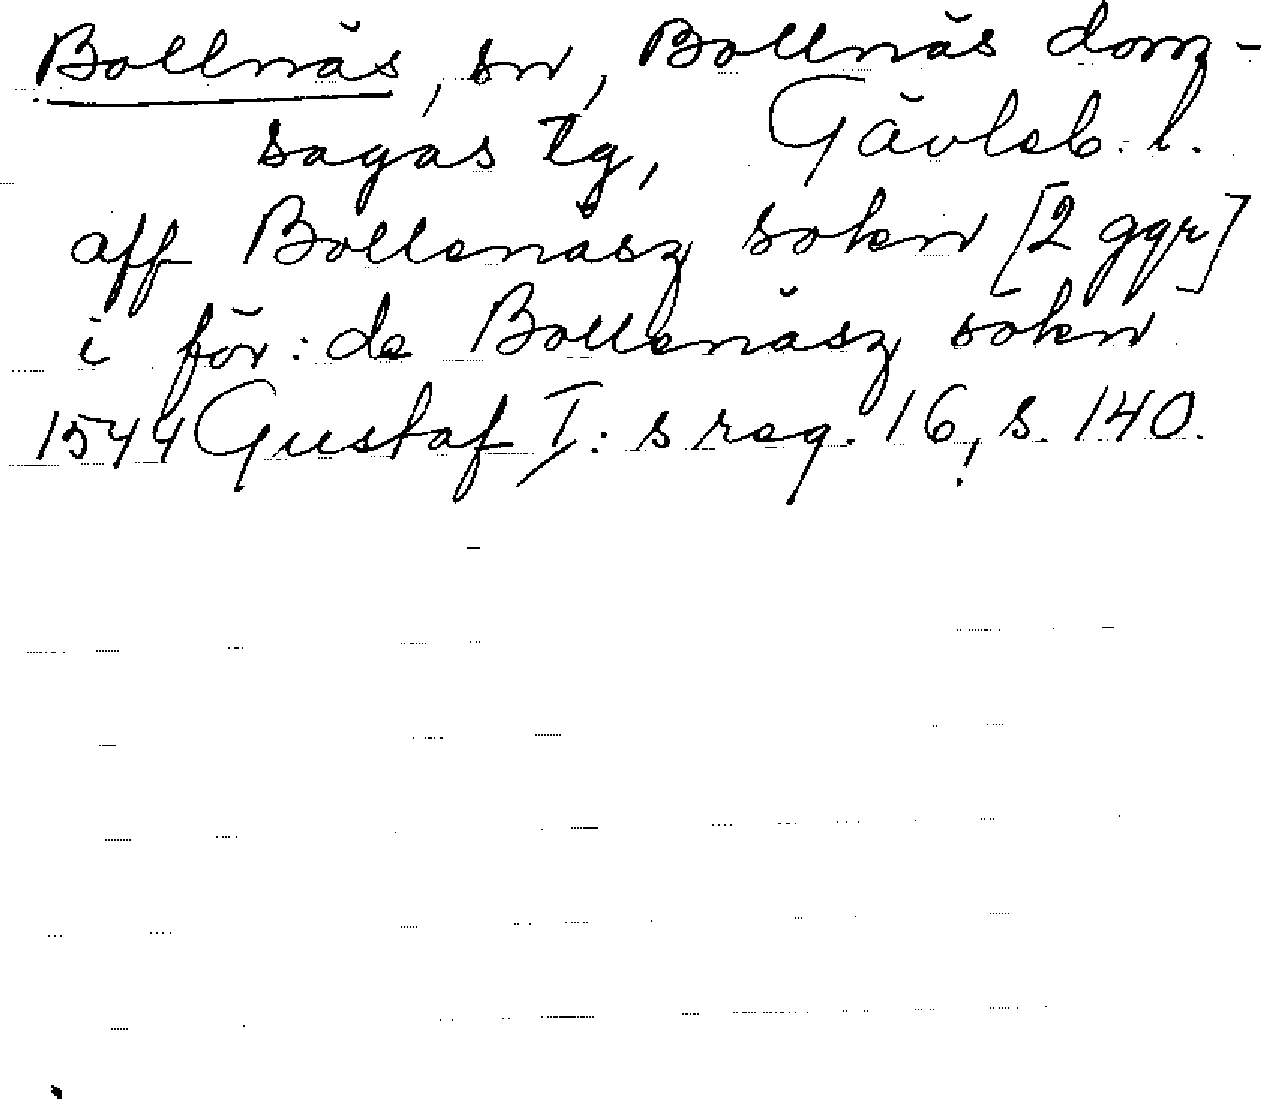 Bollnäs, sn, Bollnäs dom-
sagas tg, Gävleb. l.
aff Bollenäsz sokn [2 ggr]
i för: de Bollenäsz sökn
1544 Gustaf I:s reg. 16, s. 140.